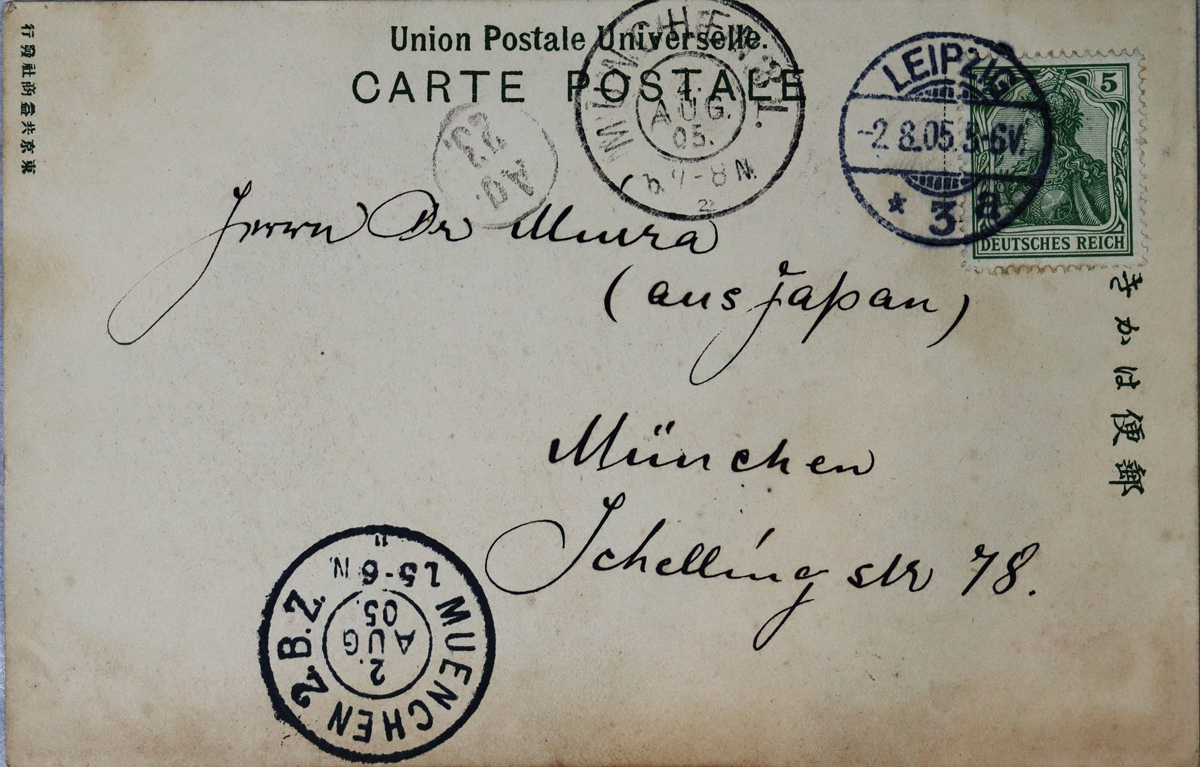 Union Postale Universelle.
CARTE POSTALE
東京共益商社發行
郵便はかき
5
DEUTSCHES REICH
LEIPZIG
-2.8.05.5-6V.
* 3 a
AUG.
05.
7-8 N.
AG.
23
Herrn Dr Miura
(aus Japan)
München
Schelling str 78.
MUENCHEN 2 B.Z.
2.
AUG
05.
5-6 N.